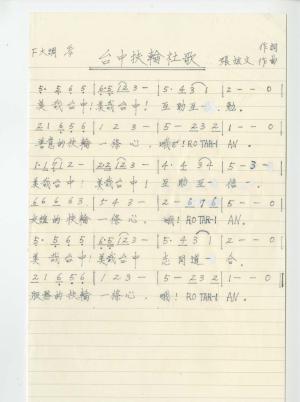 下大調
台中扶輪社歌
作詞
張 文 作曲
5· 5 6 5 | 6·5 1 2 3 – | 5· 4 3 1 | 2 – – 0
美哉台中！美哉台中！ 互助互 勉.
2 1 6 5 6 | 1 2 3 – | 5 – 2 3 2 | 1 – – 0
的扶輪 一條心. 哦! ROTAR-I AN.
1·1 6 1 2 – | 2 2 1 2 3 – | 4· 4 3 4 | 5 – 3
美哉台中! 美哉台中! 互助互 信.
6 6 6 6 3. | 5 4 3 – | 2 – 6 7 6 | 5 – – 0
的扶輪 一條心. 哦! ROTAR-I AN.
5· 5 6 5 | 6·5 1 2 3 – | 5· 4 3 1 | 2 – – 0
美哉台中! 美哉台中 志同道 合.
2 1 6 5 6 | 1 2 3 – | 5 – 2 3 2 | 1 – – 0
服務的扶輪 一條心. 哦! ROTAR-I AN.